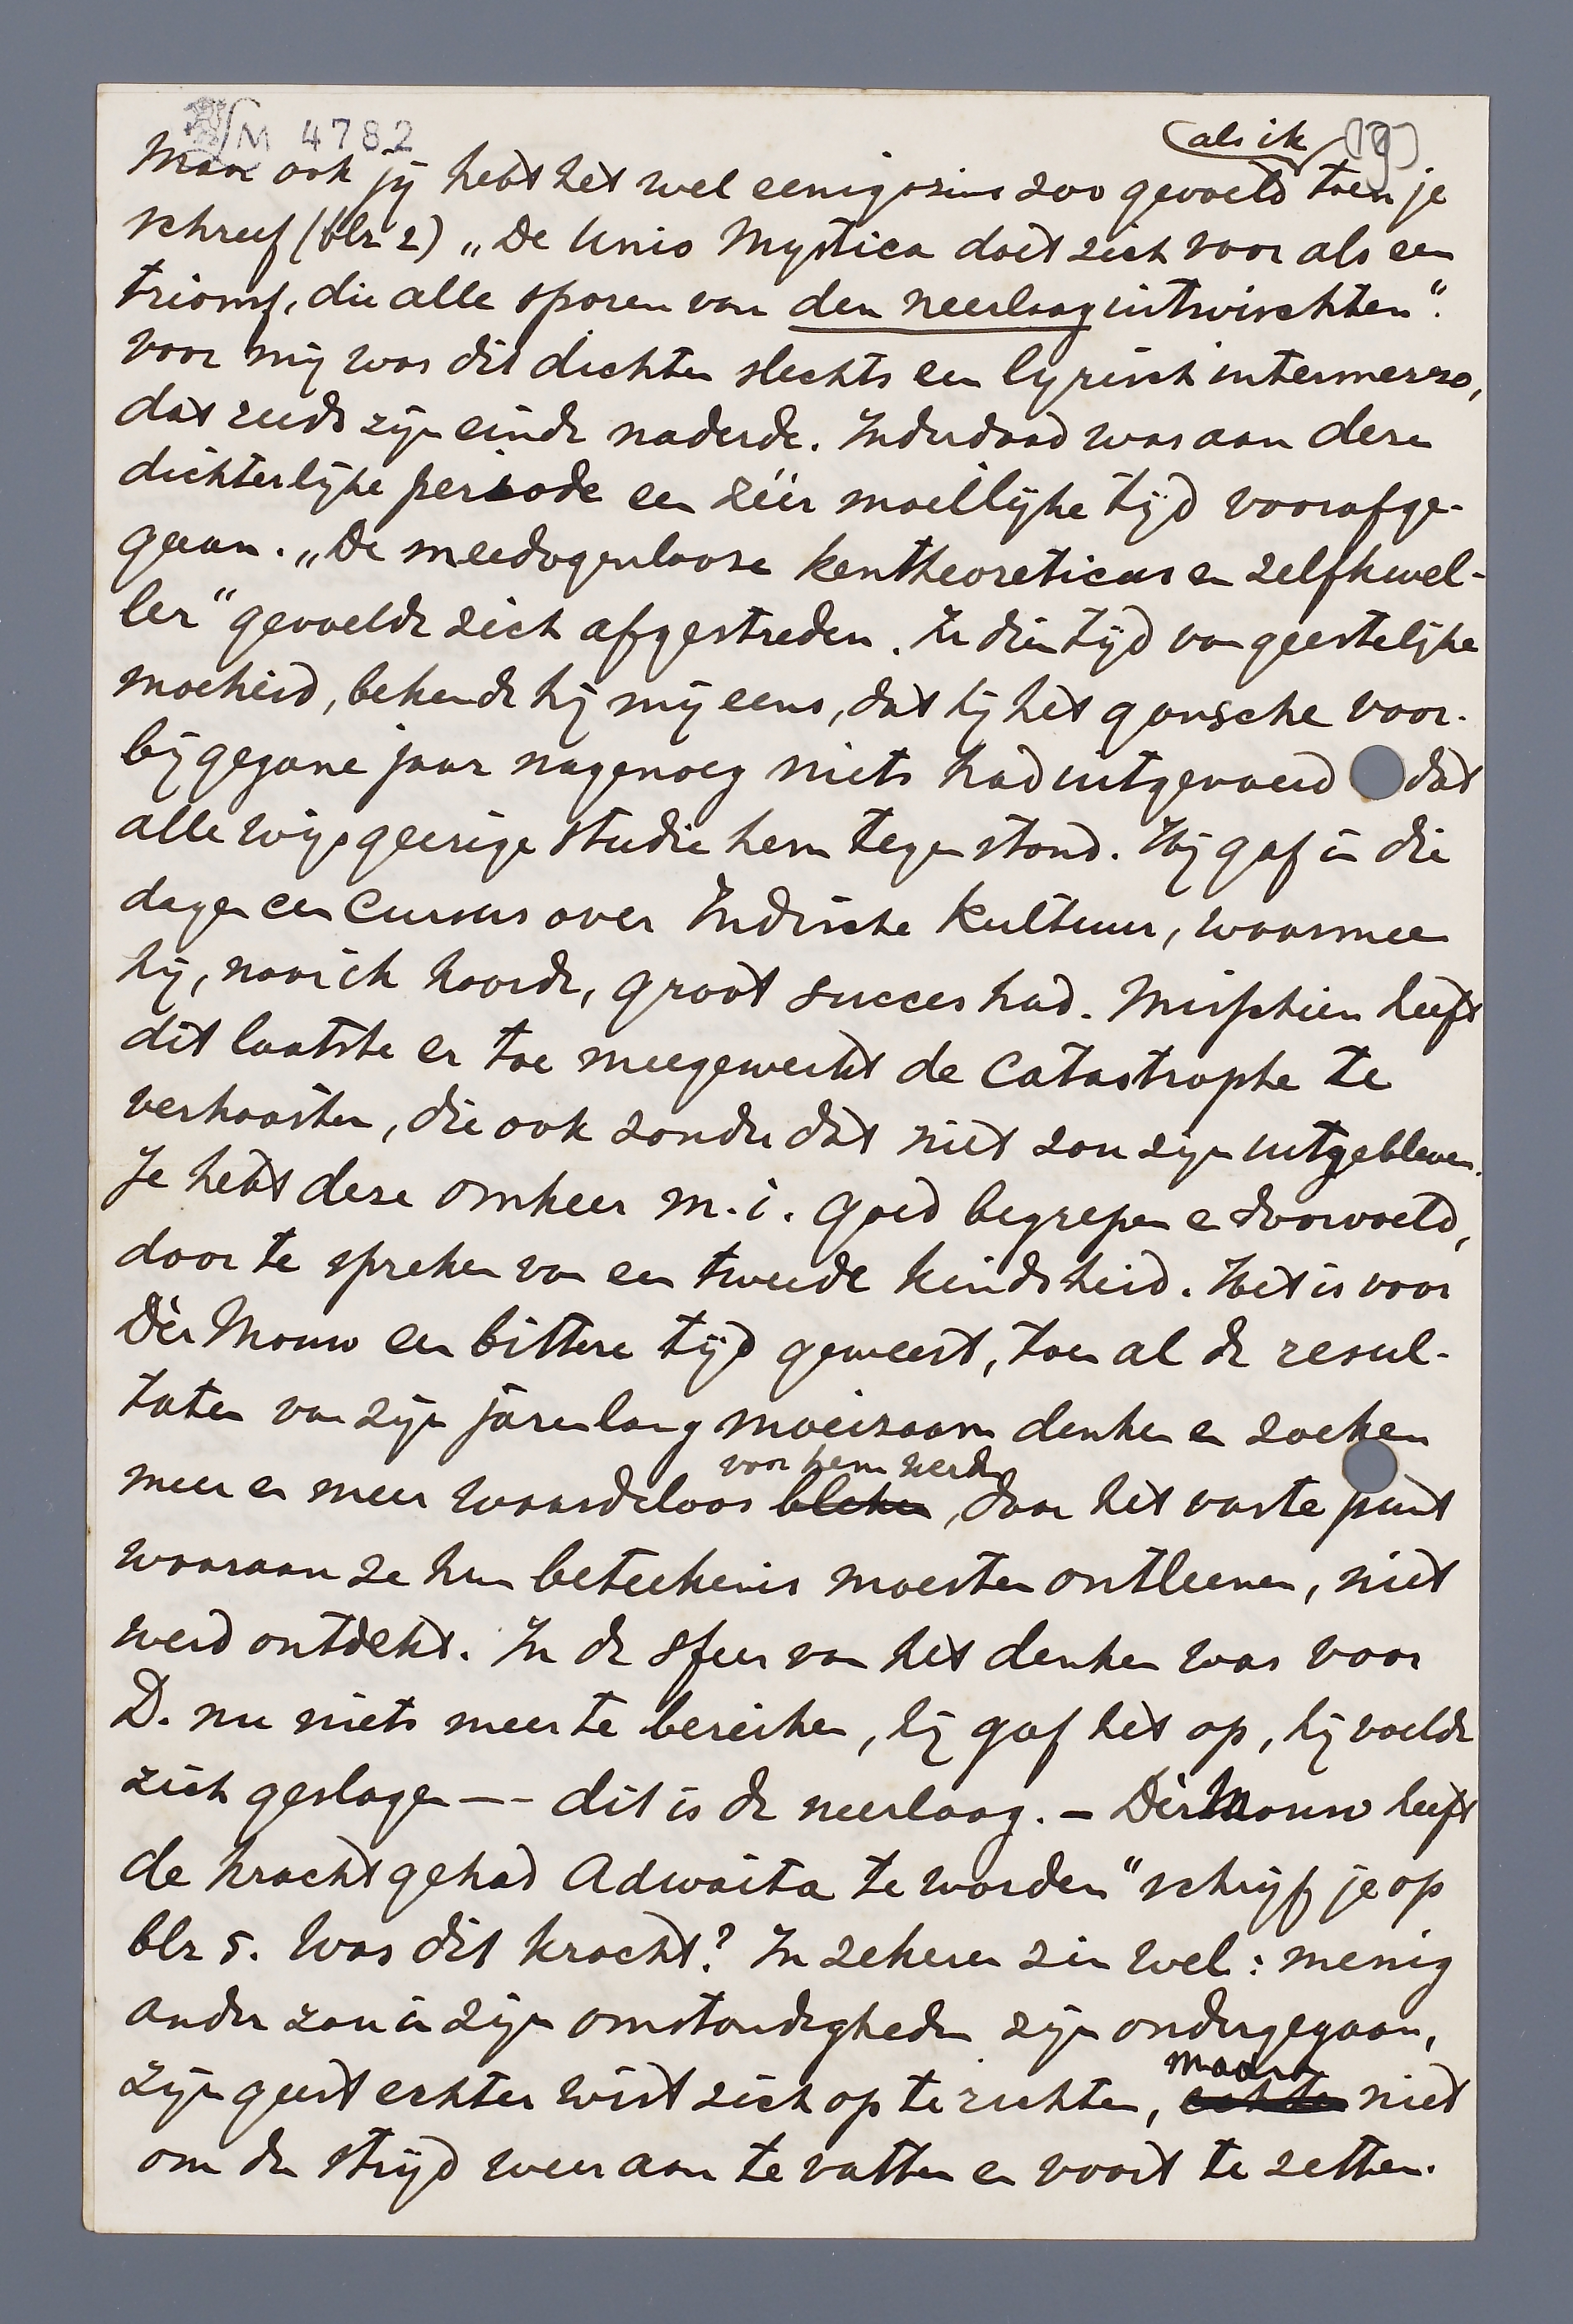 M 4782
(als ik (19)
Maar ook jij hebt het wel eenigszins zoo gevoeld toen je
schreef (blz 2) „De Unio Mystica doet zich voor als een
triomf, die alle sporen van den neerlaag uitwischten".
voor mij was dit dichten slechts een lyrisch intermezzo,
dat reeds zijn einde naderde. Inderdaad was aan deze
dichterlijke periode een zéér moeilijke tijd voorafge-
gaan. „De meedogenlooze kentheoreticus en zelfkwel-
ler" gevoelde zich afgestreden. In dien tijd van geestelijke
moeheid, bekende hij mij eens, dat hij het gansche voor-
bijgegane jaar nagenoeg niets had uitgevoerd dat
alle wijsgeerige studie hem tegenstond. Hij gaf in die
dagen een Cursus over Indische Kultuur, waarmee
hij, naar ik hoorde, groot succes had. Misschien heeft
dit laatste er toe meegewerkt de Catastrophe te
verhaasten, die ook zonder dat niet zou zijn uitgebleven.
Je hebt deze omkeer m.i. goed begrepen en doorvoeld,
door te spreken van een tweede kindsheid. Het is voor
Dèr Mouw een bittere tijd geweest, toen al de resul-
taten van zijn jarenlang moeizaam denken en zoeken
voor hem werden
meer en meer waardeloos bleken, daar het vaste punt
waaraan ze hun beteekenis moesten ontleenen, niet
werd ontdekt. In de sfeer van het denken was voor
D. nu niets meer te bereiken, hij gaf het op, hij voelde
zich geslagen –– dit is de neerlaag. – Dèr Mouw heeft
de kracht gehad Adwaita te worden" schrijf je op
blz 5. Was dit kracht? In zekeren zin wel: menig
ander zou in zijn omstandigheden zijn ondergegaan,
maar
zijn geest echter wist zich op te richten, echter niet
om den strijd weer aan te vatten en voort te zetten.